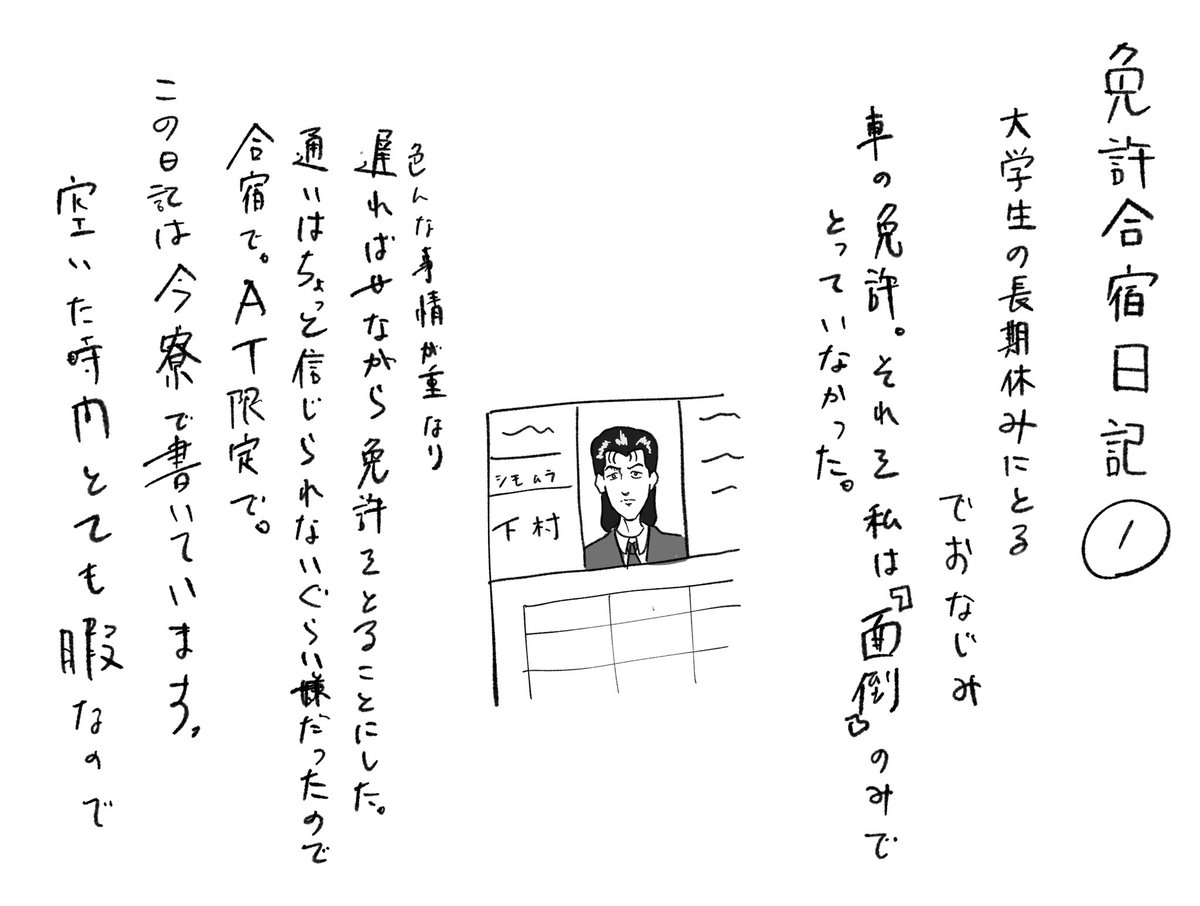 免許合宿日記①
大学生の長期休みにとる
でおなじみ
車の免許。それを私は『面倒』のみで
とっていなかった。
シモムラ
下村
色んな事情が重なり
遅ればせながら免許をとることにした。
通いはちょっと信じられないぐらい嫌だったので
合宿で。AT限定で。
この日記は今寮で書いています。
空いた時内とても暇なので